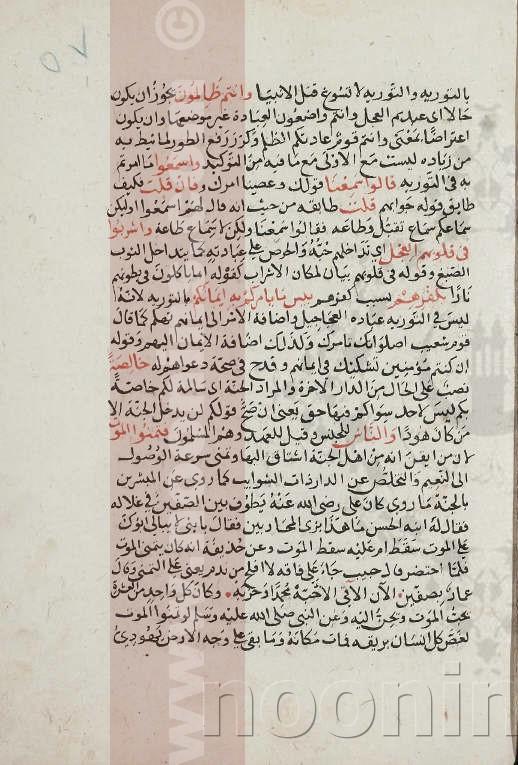 ٥٧
بالتورية والتورية لا تسوغ قتل الانبيا وانتم ظالمون يجوز ان يكون
حالا اى عبدتم العجل وانتم واضعون العبادة غير موضعها وان يكون
اعتراضا بمعنى وانتم قوم عادتكم الظلم وكرر رفع الطور لما نيط به
من زيادة ليست مع الاولى مع ما فيه من التوكيد واسمعوا ما امرتم
به فى التورية قالوا سمعنا قولك وعصينا امرك وفان قلت فكيف
طابق قوله جوابهم قلت طابقه من حيث انه قال لهم اسمعوا وليكن
سماعكم سماع تقبل وطاعة فقالوا سمعنا ولكن لا سماع طاعة واشربوا
فى قلوبهم العجل اى تداخلهم حبه والحرص على عبادته كما يتداخل الثوب
الصبغ وقوله فى قلوبهم بيان لمكان الاشراب كقوله انما ياكلون فى بطونهم
نارا بكفرهم بسبب كفرهم بئس ما يامركم به ايمانكم بالتورية لانه
ليس فى التورية عبادة العجاجيل واضافة الامر الى ايمانهم تهكم كما قال
قوم شعيب اصلوتك تامرك وكذلك اضافة الايمان اليهم وقوله
ان كنتم مؤمنين تشكيك فى ايمانهم وقدح فى صحة دعواهم له خالصة
نصب على الحال من الدار الاخرة والمراد الجنة اى سالمة لكم خاصة
بكم ليس لاحد سواكم فيها حق يعنى ان صح قولكم لن يدخل الجنة الا
من كان هودا والناس للجنس وقيل للعهد وهم المسلمون فتمنوا الموت
لان من ايقن انه من اهل الجنة اشتاق اليها وتمنى سرعة الوصول
الى النعيم والتخلص عن الدار ذات الشوايب كما روى عن المبشرين
بالجنة ما روى كان على رضى الله عنه يطوف بين الصفين فى غلالة
فقال له ابنه الحسن ما هذا بزى المحاربين فقال يا بنى لا يبالى ابوك
على الموت سقط ام عليه سقط الموت وعن حذيفة انه كان يتمنى الموت
فلما احتضر قال حبيب جاء على فاقة لا افلح من ندم يعنى على التمنى وقال
عمار بصفين الان الاقى الاحبة محمدا وحزبه وكان كل واحد من العشرة
يحب الموت ويحن اليه وعن النبى صلى الله عليه وسلم لو تمنوا الموت
لغص كل انسان بريقه فمات مكانه وما بقى على وجه الارض يهودى
www.noonin